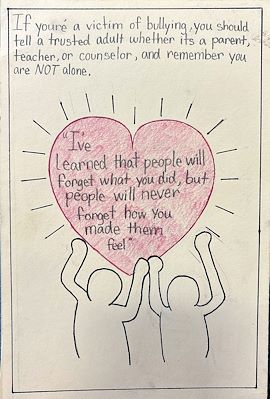 If youré a victim of bullying, you should
tell a trusted adult whether its a parent,
teacher, or counselor, and remember you
are NOT alone.
"I've
learned that people will
forget what you did, but
people will never
forget how you
made them
feel"